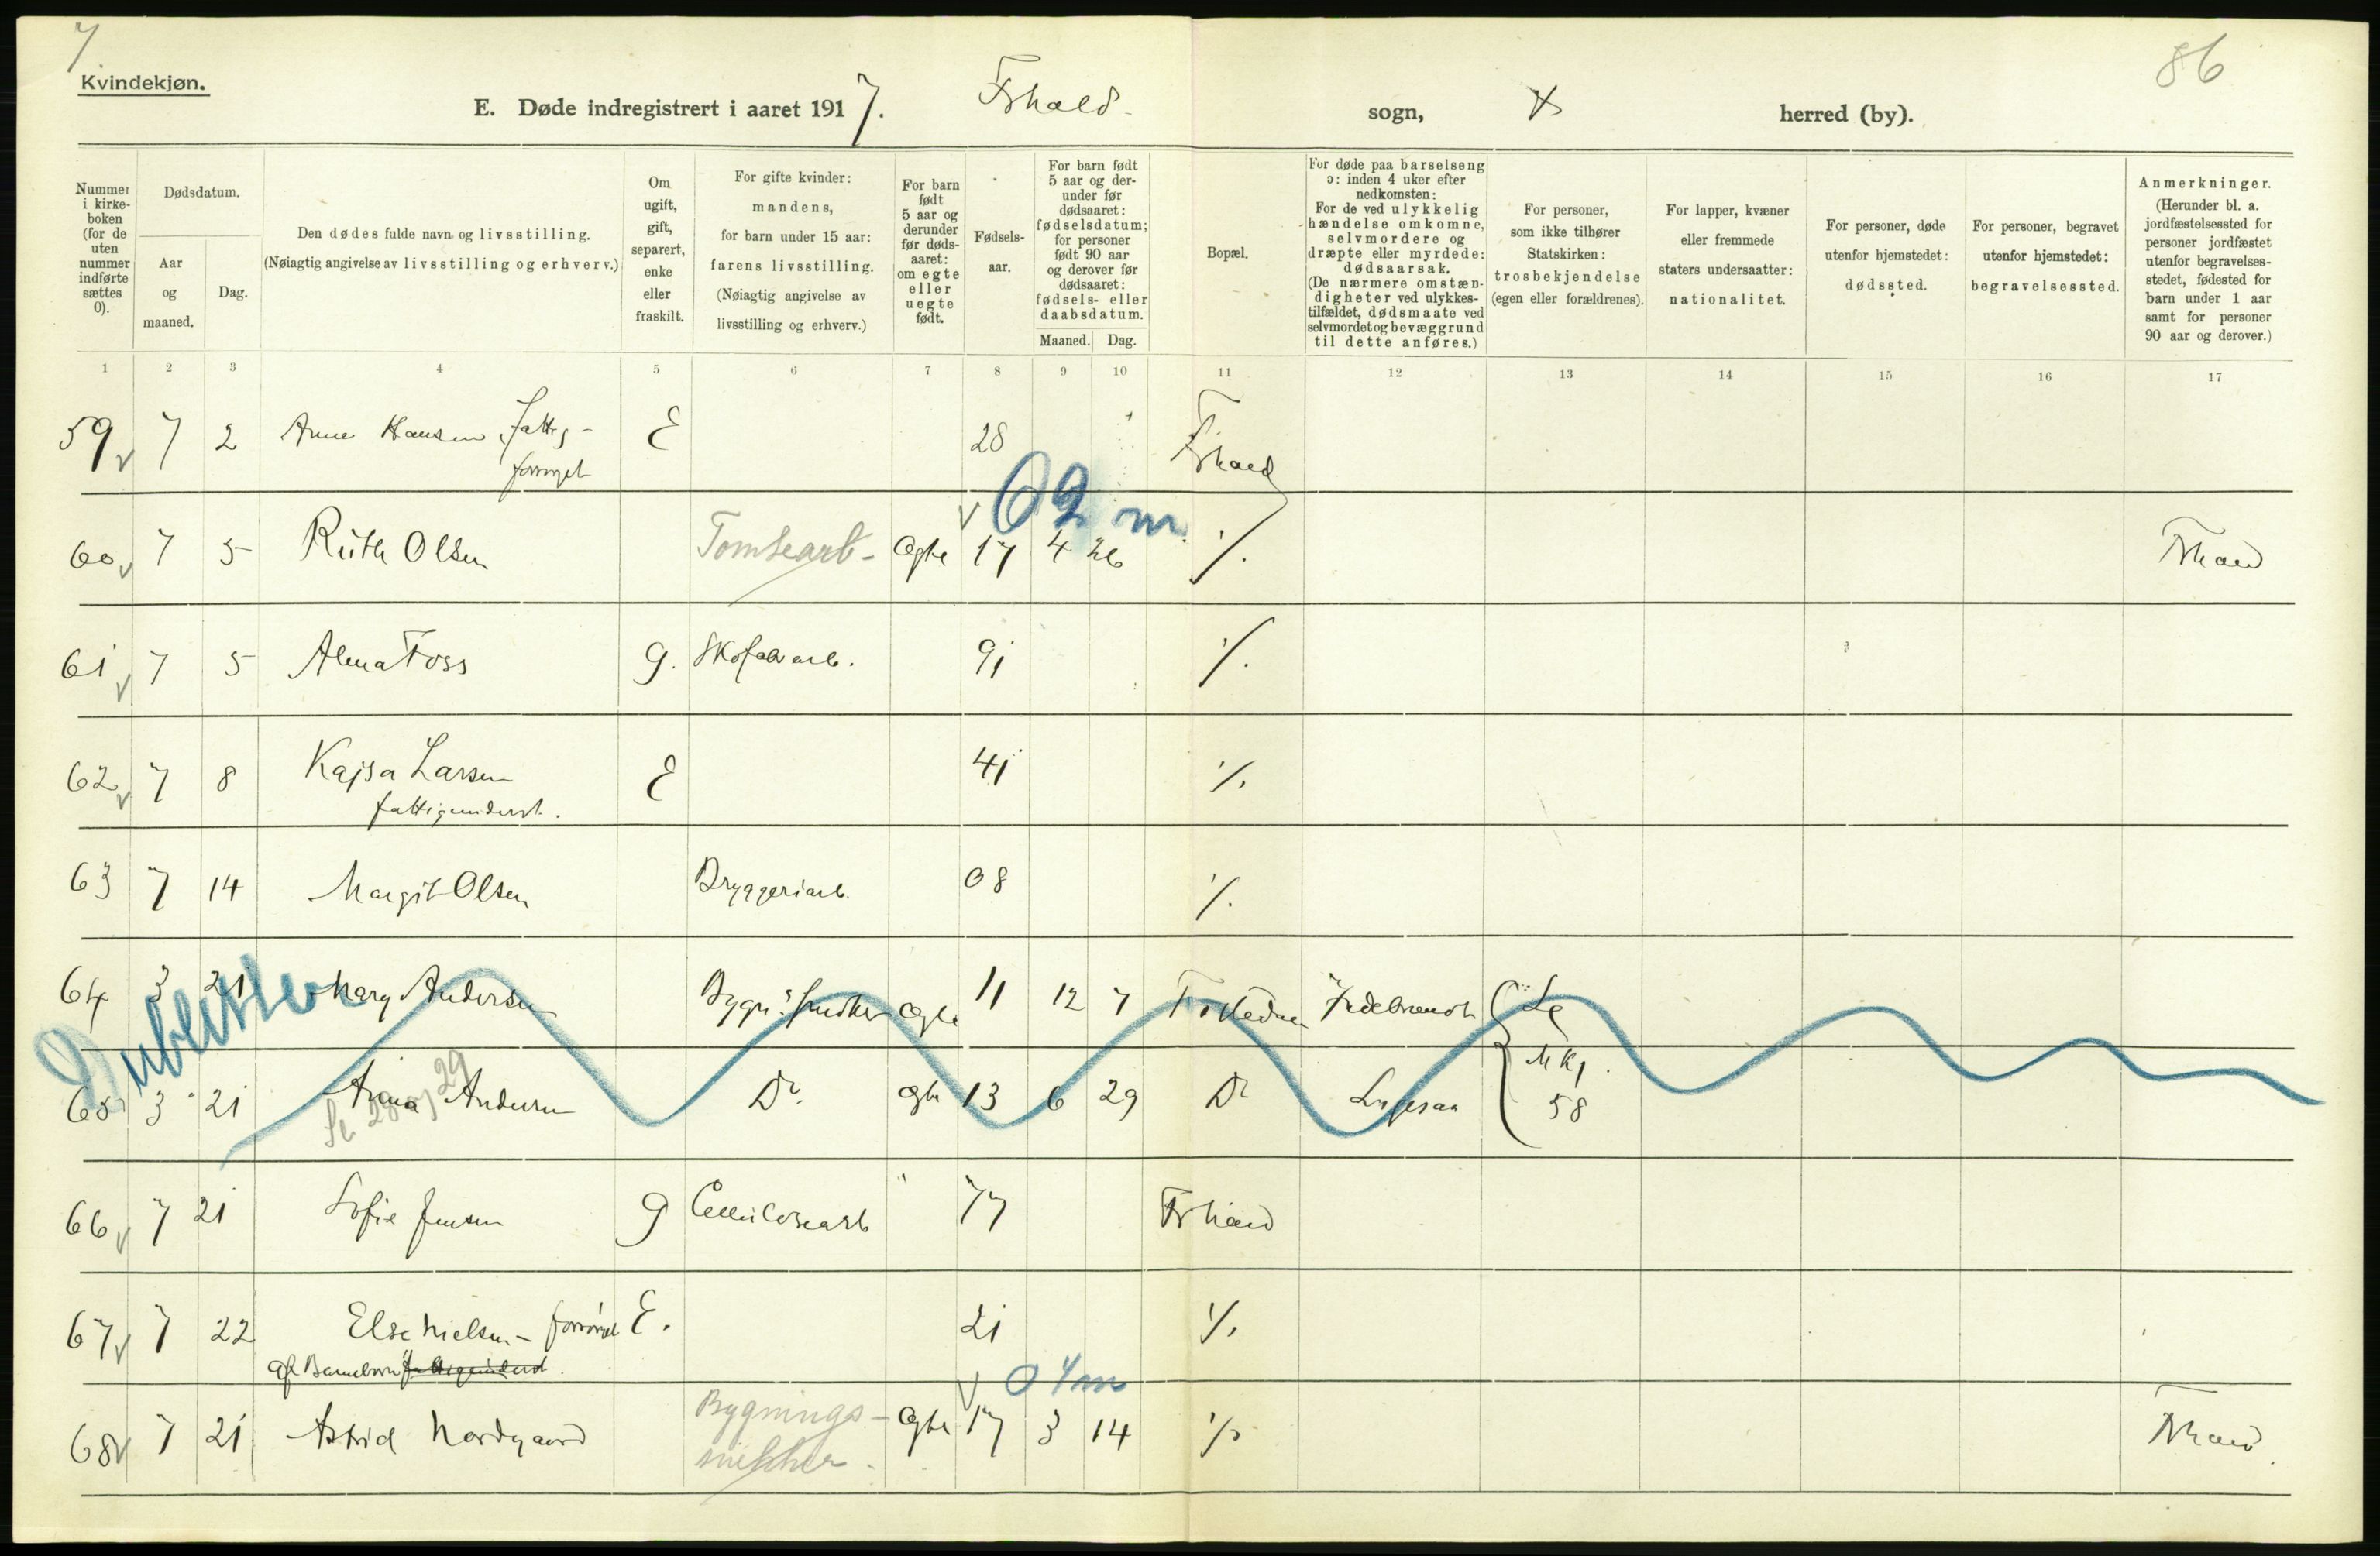 7
86
Kvindekjøn.
E. Døde indregistrert i aaret 1917. Frhald sogn, herred (by).
Nummer i kirkeboken (for de uten nummer indførte sættes 0).
Dødsdatum.
Aar og maaned.
Dag.
Den dødes fulde navn og livsstilling.
(Nøiagtig angivelse av livsstilling og erhverv.)
Om ugift, gift, separert, enke eller fraskilt.
For gifte kvinder: mandens, for barn under 15 aar: farens livsstilling. (Nøiagtig angivelse av livsstilling og erhverv.)
For barn født 5 aar og derunder før dødsaaret: om egte eller uegte født.
Fødselsaar.
For barn født 5 aar og derunder før dødsaaret: fødselsdatum; for personer født 90 aar og derover før dødsaaret: fødsels- eller daabsdatum.
Maaned. Dag.
Bopæl.
For døde paa barselseng ɔ: inden 4 uker efter nedkomsten: For de ved ulykkelig hændelse omkomne, selvmordere og dræpte eller myrdede: dødsaarsak. (De nærmere omstændigheter ved ulykkestilfældet, dødsmaate ved selvmordet og bevæggrund til dette anføres.)
For personer, som ikke tilhører Statskirken: trosbekjendelse (egen eller forældrenes).
For lapper, kvæner eller fremmede staters undersaatter: nationalitet.
For personer, døde utenfor hjemstedet: dødssted.
For personer, begravet utenfor hjemstedet: begravelsessted.
Anmerkninger. (Herunder bl. a. jordfæstelsessted for personer jordfæstet utenfor begravelsesstedet, fødested for barn under 1 aar samt for personer 90 aar og derover.)
1 2 3 4 5 6 7 8 9 10 11 12 13 14 15 16 17
59 7 2 Anne Hansen, fattig- E 28 Frhald
forsørget
0 2 m
60 7 5 Ruth Olsen Tomtearb- Egte 17 4 26 ./. Frhald
61 7 5 Alma Foss g. Skofabarb. 91 ./.
62 7 8 Kajsa Larsen E 41 ./.
fattigunderst.
63 7 14 Margit Olsen Bryggeriarb. 08 ./.
Dubletter
64 3 21 Mary Andersen Bygn. Snedker Egte 11 12 7 Ildebrand
65 3 21 Anna Andersen Do. Egte 13 6 29 Do
58
66 7 21 Sofie Jensen g Cellulosearb 77 Frhald
67 7 22 Else Nielsen - forsørget E. 21 ./.
af Barnebarn
0 4 m
68 7 21 Astrid Nordgaard Bygnings- Egte 17 3 14 ./. Frhald
snekker